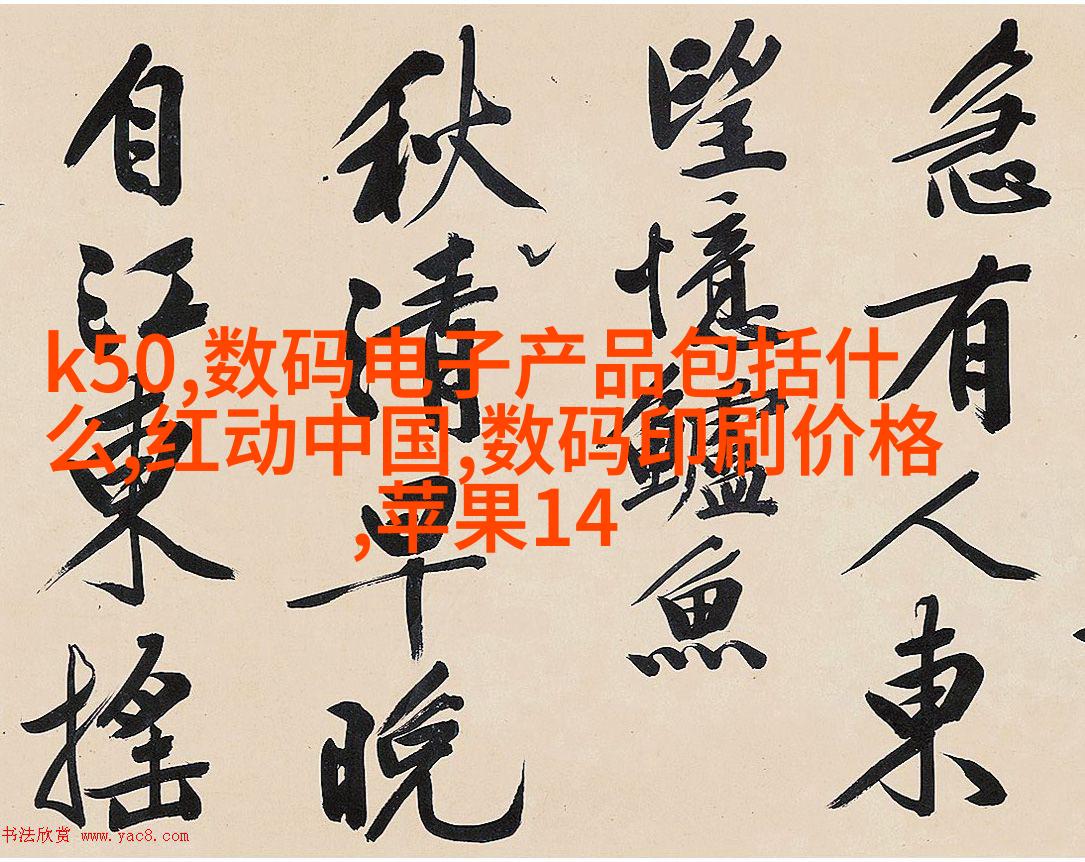 急有人東
望憶鱸魚
秋清早晚
自江東搖
k50,数码电子产品包括什
么,红动中国,数码印刷价格
,苹果14
书法欣赏 www.yac8.com